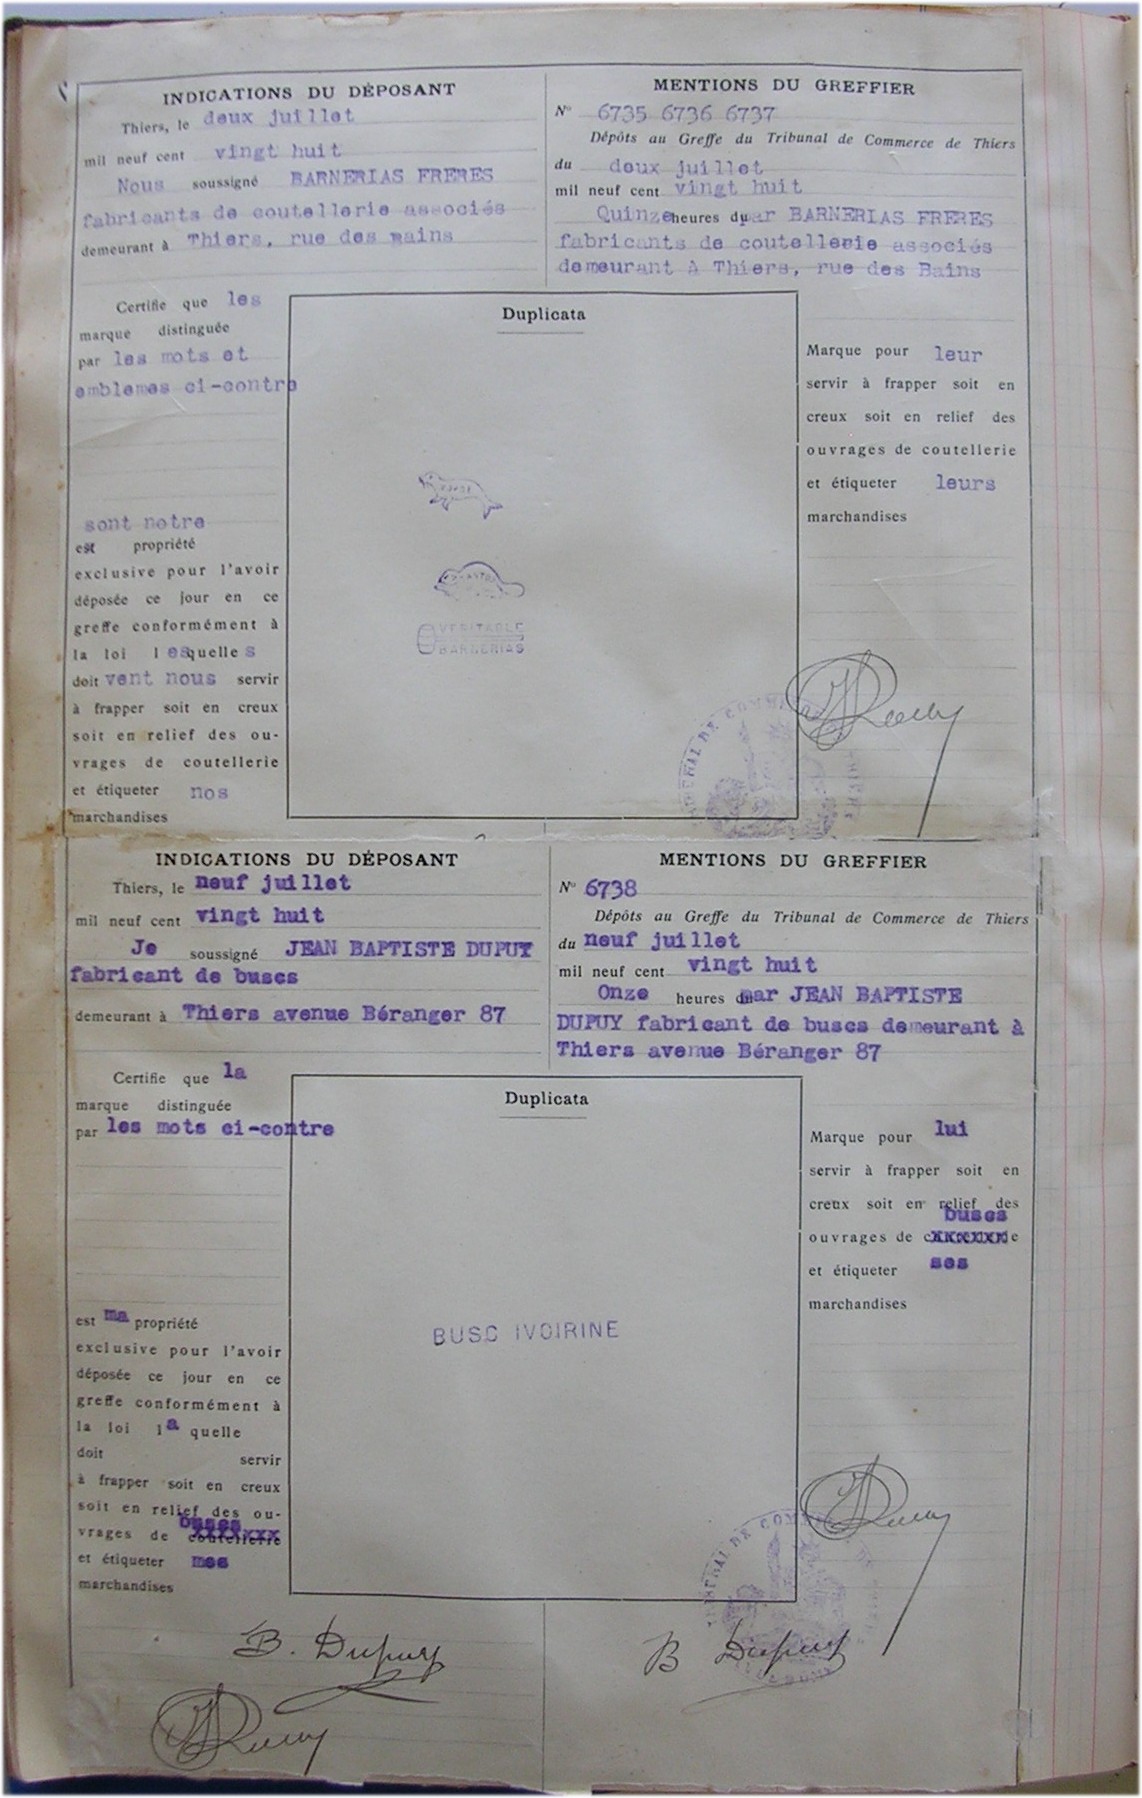 INDICATIONS DU DÉPOSANT
Thiers, le deux juillet
mil neuf cent vingt huit
Nous soussigné BARNERIAS FRERES
fabricants de coutellerie associés
demeurant à Thiers, rue des mains
Certifie que les
marque distinguée
par les mots et
emblemes ci-contre
sont notre
est propriété
exclusive pour l'avoir
déposée ce jour en ce
greffe conformément à
la loi lesquelles
doitvent nous servir
à frapper soit en creux
soit en relief des ou-
vrages de coutellerie
et étiqueter nos
marchandises
MENTIONS DU GREFFIER
N° 6735 6736 6737
Dépôts au Greffe du Tribunal de Commerce de Thiers
du deux juillet
mil neuf cent vingt huit
Quinze heures par BARNERIAS FRERES
fabricants de coutellerie associés
demeurant à Thiers, rue des Bains
Duplicata
VERITABLE
BARNERIAS
Marque pour leur
servir à frapper soit en
creux soit en relief des
ouvrages de coutellerie
et étiqueter leurs
marchandises
TRIBUNAL DE COMMERCE
INDICATIONS DU DÉPOSANT
Thiers, le neuf juillet
mil neuf cent vingt huit
Je soussigné JEAN BAPTISTE DUPUY
fabricant de buscs
demeurant à Thiers avenue Béranger 87
Certifie que la
marque distinguée
par les mots ci-contre
est ma propriété
exclusive pour l'avoir
déposée ce jour en ce
greffe conformément à
la loi laquelle
doit servir
à frapper soit en creux
soit en relief des ou-
buscs
vrages de coutellerie
et étiqueter mes
marchandises
MENTIONS DU GREFFIER
N° 6738
Dépôts au Greffe du Tribunal de Commerce de Thiers
du neuf juillet
mil neuf cent vingt huit
Onze heures par JEAN BAPTISTE
DUPUY fabricant de buscs demeurant à
Thiers avenue Béranger 87
Duplicata
BUSC IVOIRINE
Marque pour lui
servir à frapper soit en
creux soit en relief des
buscs
ouvrages de
et étiqueter ses
marchandises
TRIBUNAL DE COMMERCE
B. Dupuy
B Dupuy